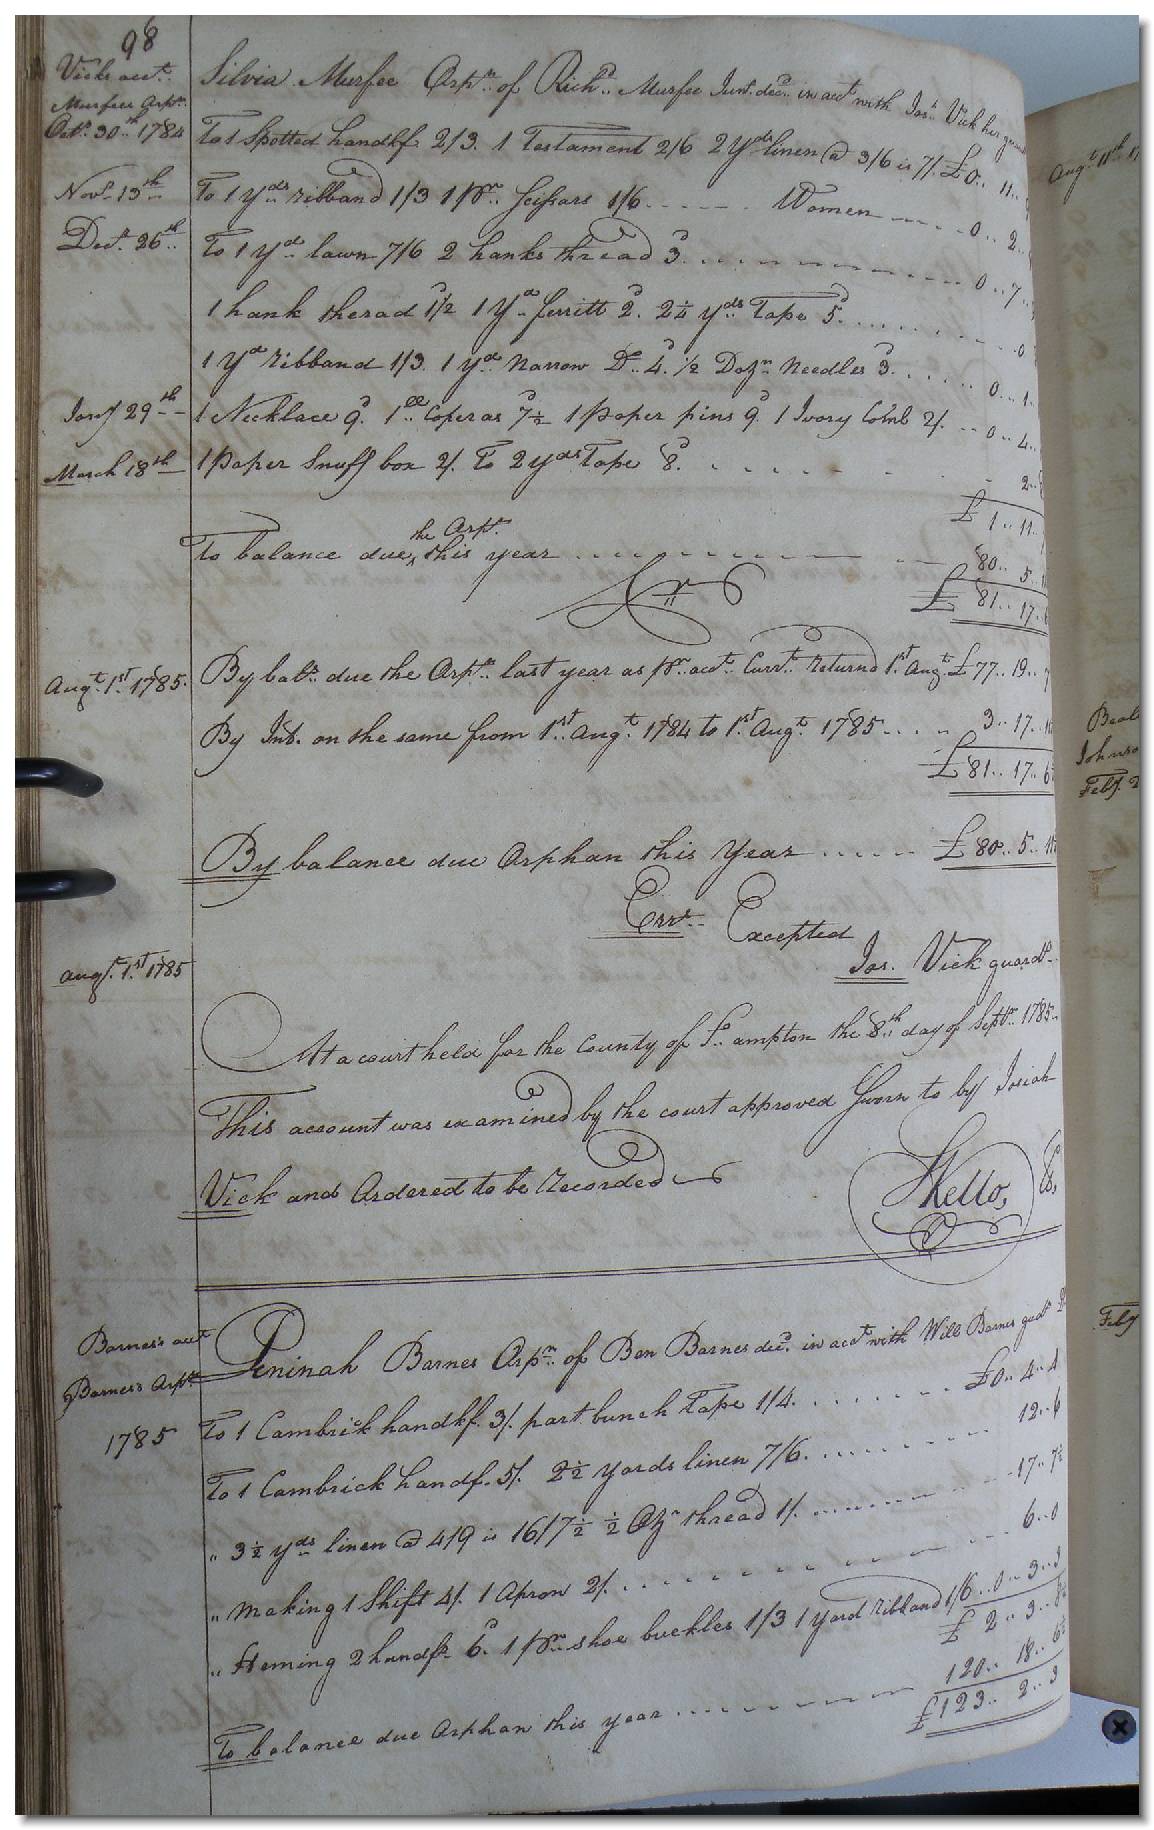 98
Vicks acct.
Murfee Arpn.
Silvia Murfee Arpn. of Richd. Murfee Junr. decd. in acct with Jos. Vick her
Octr. 30th 1784 To 1 Spotted handkf 2/3. 1 Testament 2/6 2 Yds linen @ 3/6 is 7/. £0.. 11..
Novr. 13th To 1 Yds ribband 1/3 1 pr. Scissars 1/6 Women 0.. 2..
Decr. 26th To 1 Yd lawn 7/6 2 hanks thread 3d 0.. 7..
1 hank therad 1½ 1 Yd ferritt 2d. 2¼ yds Tape 5d. 0
1 Yd Ribband 1/3. 1 yd. Narrow Do. 4d. ½ Dozn Needles 3d. 0.. 1..
Jany 29th 1 Necklace 9d. 1 Coperas 7½ 1 paper pins 9d. 1 Ivory Comb 2/. 0.. 4..
March 18th 1 Paper Snuff box 2/. To 2 yds Tape 8d. 2..
£ 1.. 11..
the Arpn.
To balance due this year 80.. 5..
£ 81.. 17..
Cr
Augt. 1st 1785. By balce. due the Arpn. last year as pr. acct. Currt. returnd 1st Augt. £77.. 19..
By Int. on the same from 1st Augt. 1784 to 1st Augt. 1785 3.. 17..
£ 81.. 17.. 6
By balance due Orphan this Year £ 80.. 5..
Errs. Excepted
Jos. Vick guardn.
augt. 1st 1785
At a court held for the County of So. ampton the 8th day of Septr. 1785
This account was examined by the court approved Sworn to by Josiah
Vick and Ordered to be Recorded
Kello, C
Barnes's acct
Barnes's Arpn.
Peninah Barnes Arpn. of Ben Barnes decd. in acct with Will Barnes gudn
1785 To 1 Cambrick handkf. 3/. part bunch Tape 1/4. £0.. 4.. 4
To 1 Cambrick handf. 5/. 2½ yards linen 7/6. 12.. 6
" 3½ yds linen @ 4/9 is 16/7½ ½ Oz thread 1/. 17.. 7½
" Making 1 Shift 4/. 1 Apron 2/. 6.. 0
" Heming 2 handfs 6d. 1 pr. shoe buckles 1/3 1 yard ribband 1/6 .. 0.. 3.. 3
£ 2.. 3..
To balance due Orphan this year 120.. 18.. 6
£123.. 2.. 3
Augt. 11th
Johns
Feby. 2
Feby